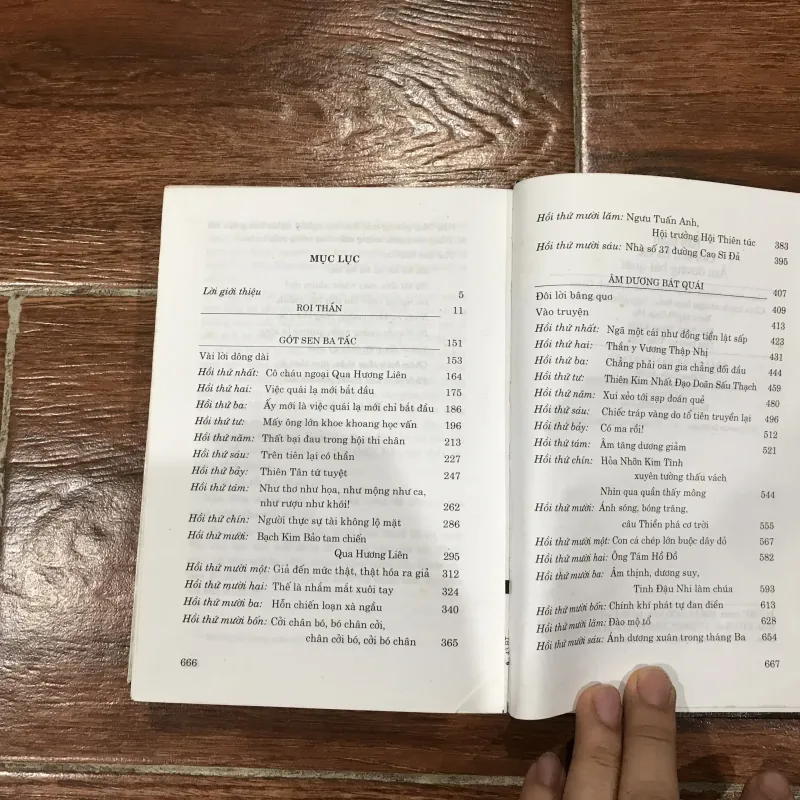 MỤC LỤC
Lời giới thiệu 5
ROI THẦN 11
GÓT SEN BA TẤC 151
Vài lời dông dài 153
Hồi thứ nhất: Cô cháu ngoại Qua Hương Liên 164
Hồi thứ hai: Việc quái lạ mới bắt đầu 175
Hồi thứ ba: Ấy mới là việc quái lạ mới chỉ bắt đầu 186
Hồi thứ tư: Mấy ông lớn khoe khoang học vấn 196
Hồi thứ năm: Thất bại đau trong hội thi chân 213
Hồi thứ sáu: Trên tiên lại có thần 227
Hồi thứ bảy: Thiên Tân tứ tuyệt 247
Hồi thứ tám: Như thơ như họa, như mộng như ca,
như rượu như khói! 262
Hồi thứ chín: Người thực sự tài không lộ mặt 286
Hồi thứ mười: Bạch Kim Bảo tam chiến
Qua Hương Liên 295
Hồi thứ mười một: Giả đến mức thật, thật hóa ra giả 312
Hồi thứ mười hai: Thế là nhắm mắt xuôi tay 324
Hồi thứ mười ba: Hỗn chiến loạn xà ngầu 340
Hồi thứ mười bốn: Cởi chân bó, bó chân cởi,
chân cởi bó, cởi bó chân 365
666
Hồi thứ mười lăm: Ngưu Tuấn Anh,
Hội trưởng Hội Thiên túc 383
Hồi thứ mười sáu: Nhà số 37 đường Cao Sĩ Đả 395
ÂM DƯƠNG BÁT QUÁI 407
Đôi lời bâng quơ 409
Vào truyện 413
Hồi thứ nhất: Ngã một cái như đồng tiền lật sấp 423
Hồi thứ hai: Thần y Vương Thập Nhị 431
Hồi thứ ba: Chẳng phải oan gia chẳng đối đầu 444
Hồi thứ tư: Thiên Kim Nhất Đạo Doãn Sấu Thạch 459
Hồi thứ năm: Xui xẻo tới sạp đoán quẻ 480
Hồi thứ sáu: Chiếc tráp vàng do tổ tiên truyền lại 496
Hồi thứ bảy: Có ma rồi! 512
Hồi thứ tám: Âm tăng dương giảm 521
Hồi thứ chín: Hỏa Nhỡn Kim Tinh
xuyên tường thấu vách
Nhìn qua quần thấy mông 544
Hồi thứ mười: Ánh sóng, bóng trăng,
câu Thiền phá cơ trời 555
Hồi thứ mười một: Con cá chép lớn buộc dây đỏ 567
Hồi thứ mười hai: Ông Tám Hồ Đồ 582
Hồi thứ mười ba: Âm thịnh, dương suy,
Tinh Đậu Nhi làm chúa 593
Hồi thứ mười bốn: Chính khí phát tự đan điền 613
Hồi thứ mười lăm: Đào mộ tổ 628
Hồi thứ mười sáu: Ánh dương xuân trong tháng Ba 654
667